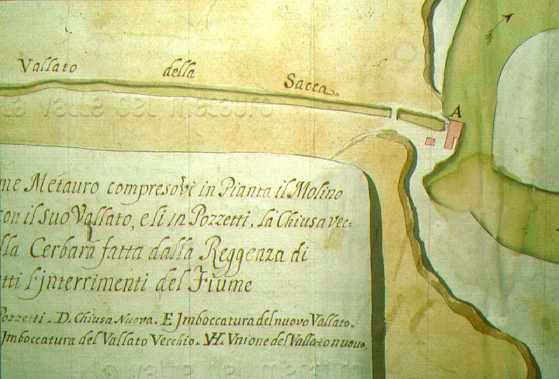 Vallato della Sacca.
La Valle del Metauro
A
me Metauro compresovi in Pianta il Molino
con il suo Vallato, e li in Pozzetti, la Chiusa vec-
lla Cerbara fatta dalla Reggenza di
tti l'interrimenti del Fiume
Pozzetti. D. Chiusa Nuova. E Imboccatura del nuovo Vallato.
Imboccatura del Vallato Vecchio. H. Unione del Vallato nuovo
La Valle del Metauro